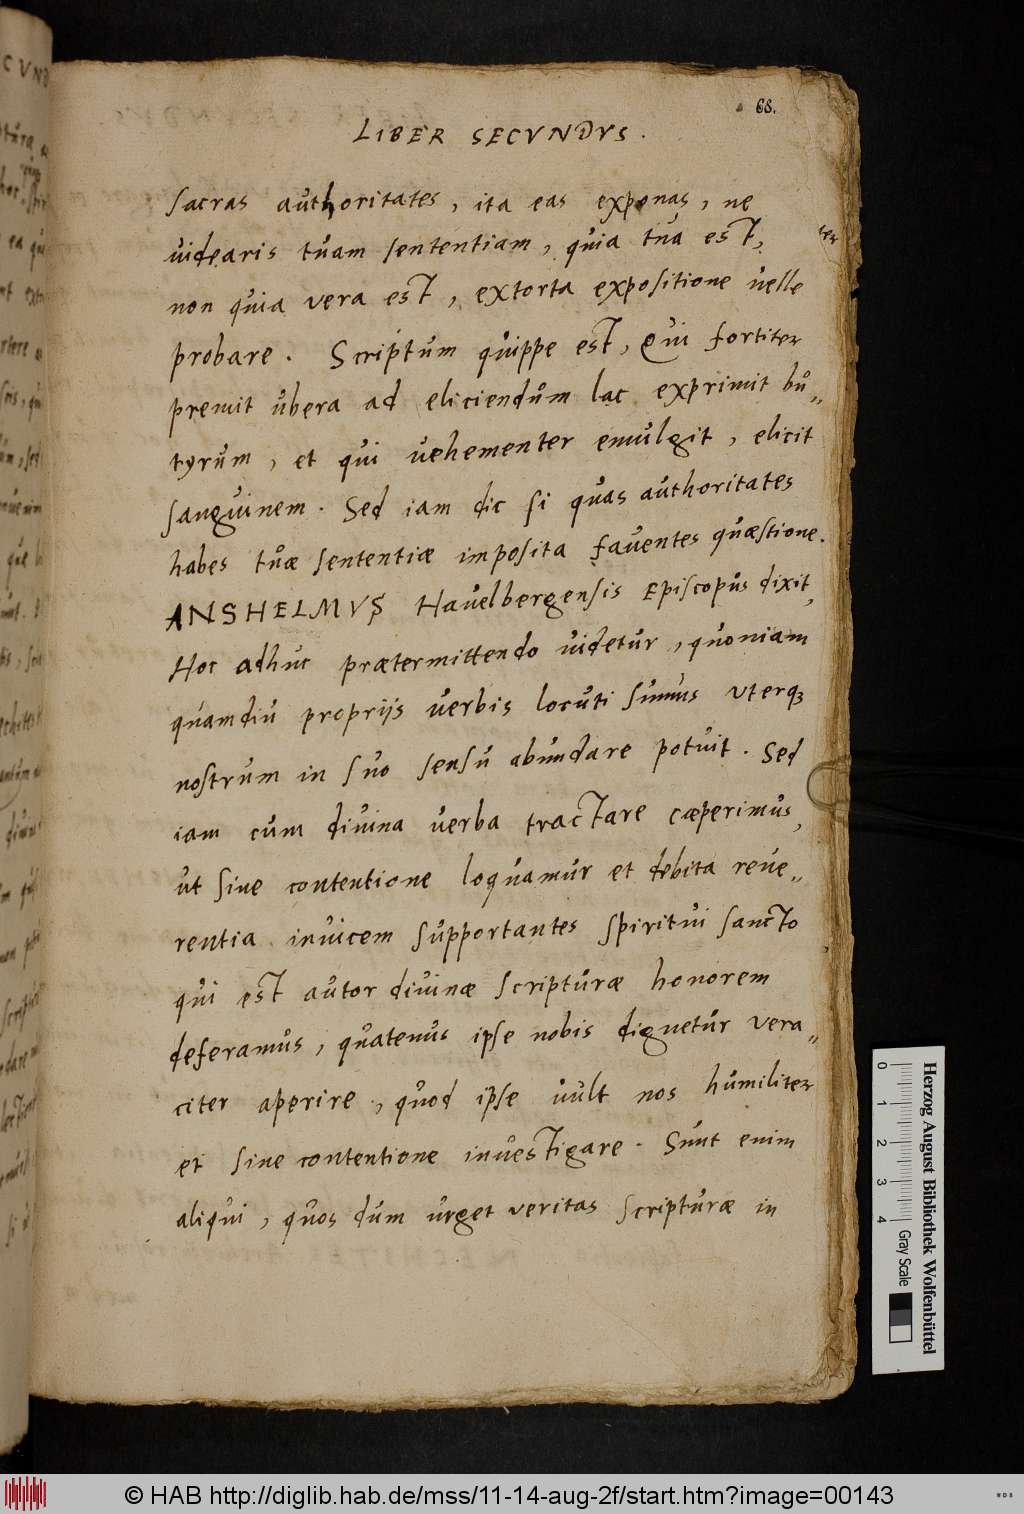 68.
LIBER SECVNDVS.
sacras authoritates, ita eas exponas, ne
uidearis tuam sententiam, quia tua est,
non quia vera est, extorta expositione uelle
probare. Scriptum quippe est, Qui fortiter
premit ubera ad eliciendum lac exprimit bu„
tyrum, et qui uehementer emulgit, elicit
sanguinem. Sed iam dic si quas authoritates
habes tuæ sententiæ imposita faventes quæstione.
ANSHELMVS Havelbergensis Episcopus dixit,
Hoc adhuc prætermittendo uidetur, quoniam
quamdiu proprijs verbis locuti sumus vterq3
nostrum in suo sensu abundare potuit. Sed
iam cum diuina verba tractare cæperimus,
ut sine contentione loquamur et debita reue„
rentia inuicem supportantes spiritui sancto,
qui est autor diuinæ scripturæ honorem
deferamus, quatenus ipse nobis dignetur vera„
citer aperire, quod ipse uult nos humiliter
et sine contentione inuestigare. Sunt enim
aliqui, quos dum urget veritas scripturæ in
Herzog August Bibliothek Wolfenbüttel
0 1 2 3 4 Gray Scale
© HAB http://diglib.hab.de/mss/11-14-aug-2f/start.htm?image=00143